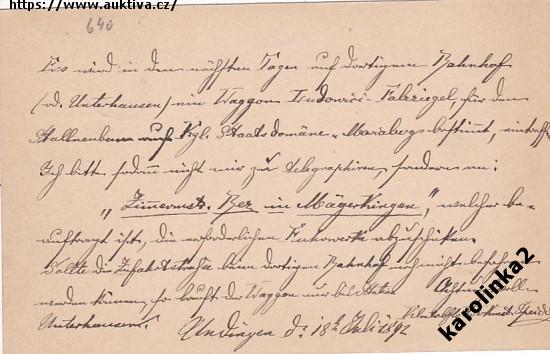 https://www.auktiva.cz/
640
Es wird in den nächsten Tagen auf dortigem Bahnhof
(od. Unterhausen) ein Waggon Ludowici-Falzziegel, für den
Stallneubau auf Kgl. Staatsdomäne „Mariaberg" bestimmt, eintreffen
Ich bitte sodann nicht mir zu telegraphiren, sondern an:
„Zimmermstr. Bez in Mägerkingen", welcher be-
auftragt ist, die erforderlichen Fuhrwerke abzuschicken.
Sollte die Zufahrtstraße beim dortigen Bahnhof noch nicht befahren
werden können, so läuft der Waggon nur bis Station
Unterhausen. Achtungsvoll
Undingen d. 18ten Juli 1892
karolinka2